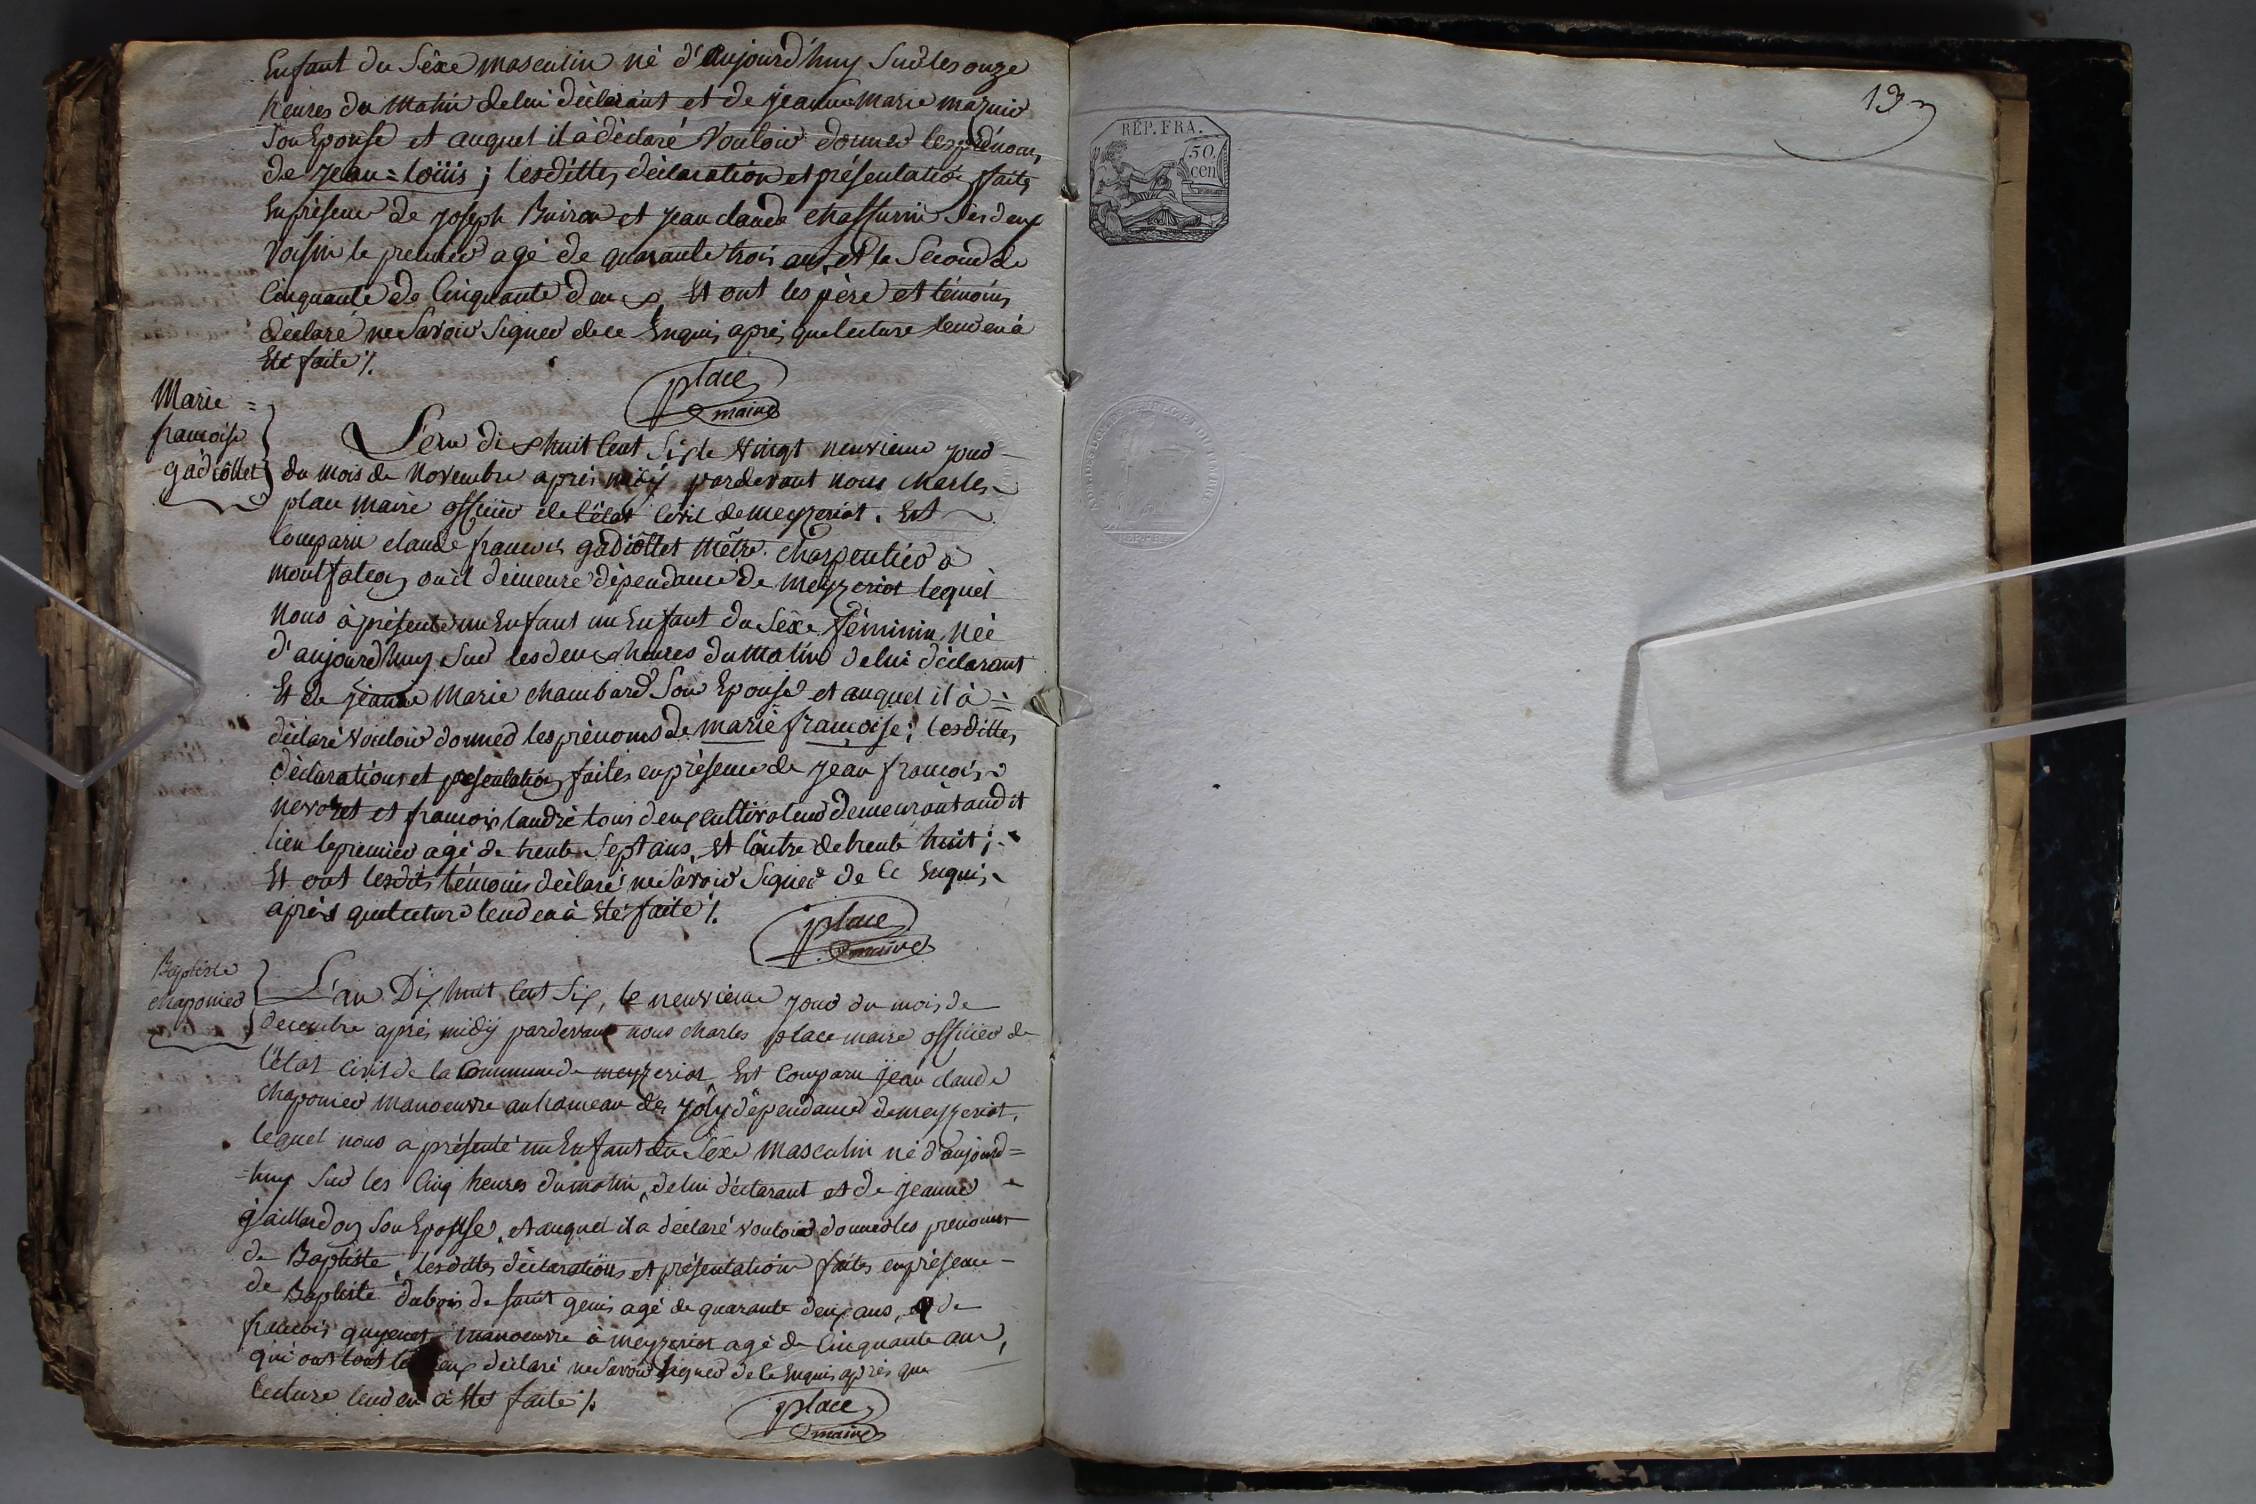 Enfant du Sèxe masculin né d'aujourd'huy Sur les onze
heures du matin de lui déclarant et de jeanne marie
Son Epouse et auquel il à déclaré Vouloir donner les prénoms
de jean=loüis; lesdittes déclaration et présentation faites
En présence de joseph Buiron et jean claude ses deux
Voisin le premier agé de quarante trois ans, et le Second de
Cinquante de Cinquante deux, Et ont les père et témoins
déclaré ne Savoir Signer de ce Enquis, après que lecture leur en à
Eté faite ⁒
place
maire
Marie =
françoise
gadiôllet
L'an dix huit Cent Six le Vingt neuvieme jour
du mois de Novembre après midÿ pardevant nous charles
place maire officier de l'état Civil de meyzeriat. Est
Comparu claude françois gadiôllet Mêtre charpentier à
montfalcon où il demeure dépendance de meyzeriat lequel
nous à présenté un Enfant un Enfant du Sèxe féminin, Née
d'aujourd'huy Sur les deux heures du matin de lui déclarant
Et de jeanne Marie chambard Son Epouse et auquel il à =
déclaré Vouloir donner les prénoms de marie françoise; lesdittes
déclarations et présentation faites en présence de jean françois
nevoret et françois landré tous deux cultivateur demeurant audit
lieu le premier agé de trente Sept ans, Et l'autre de trente huit;
Et ont lesdits témoins déclaré ne Savoir Signer de Ce Enquis,
après que lecture leur en à Eté faite ⁒
place
maire
Baptiste
chaponier
L'an Dix huit Cent Six, le neuvieme jour du mois de
decembre après midÿ pardevant nous charles place maire officier de
l'état Civil de la Commune de meyzeriat, Est Comparu jean claude
chaponier manoeuvre au hameau des joly dépendance de meyzeriat,
lequel nous a présenté un Enfant du Sèxe masculin né d'aujourd=
=huy Sur les Cinq heures du matin, de lui déclarant et de jeanne
gaillardon Son Epouse, et auquel il a déclaré vouloir donner les prenoms
de Baptiste, lesdittes déclarations et présentation faites en présence
de Baptiste dubois de saint genis agé de quarante deux ans, et de
françois guyenet manoeuvre à meyzeriat agé de Cinquante ans,
qui ont tous les deux déclaré ne Savoir Signer de Ce Enquis après que
lecture leur en à Etes faite ⁒
place
maire
19
RÉP. FRA.
50
cen